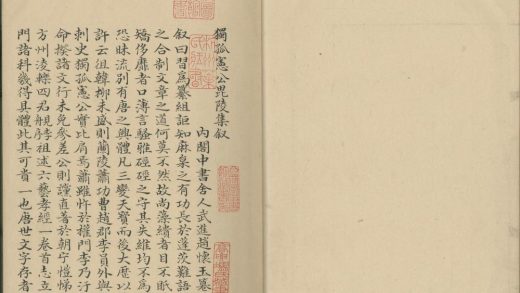 獨孤憲公毘陵集叙
內閣中書舍人武進趙懷玉纂
叙曰習爲纂組詎知麻枲之有功長於蓬茨難語
之合制文章之道何莫不然故尚藻繢者目不眂
矯侈靡者口薄言騷雅硜硜之守其失維均不爲
恐昧流別有唐之興體凡三變天寶而後大歷以
許云徂韓柳未盛則蘭陵蕭功曹趙郡李員外與
刺史獨孤憲公實比肩焉蕭雖忤於權門李乃汙
命揆諸文行未免參差公則謹直著於朝宁愷悌
方州淩轢四君祖述六藝孝經一卷首志立
門諸科幾得具體此其可貴一也唐世文字存者